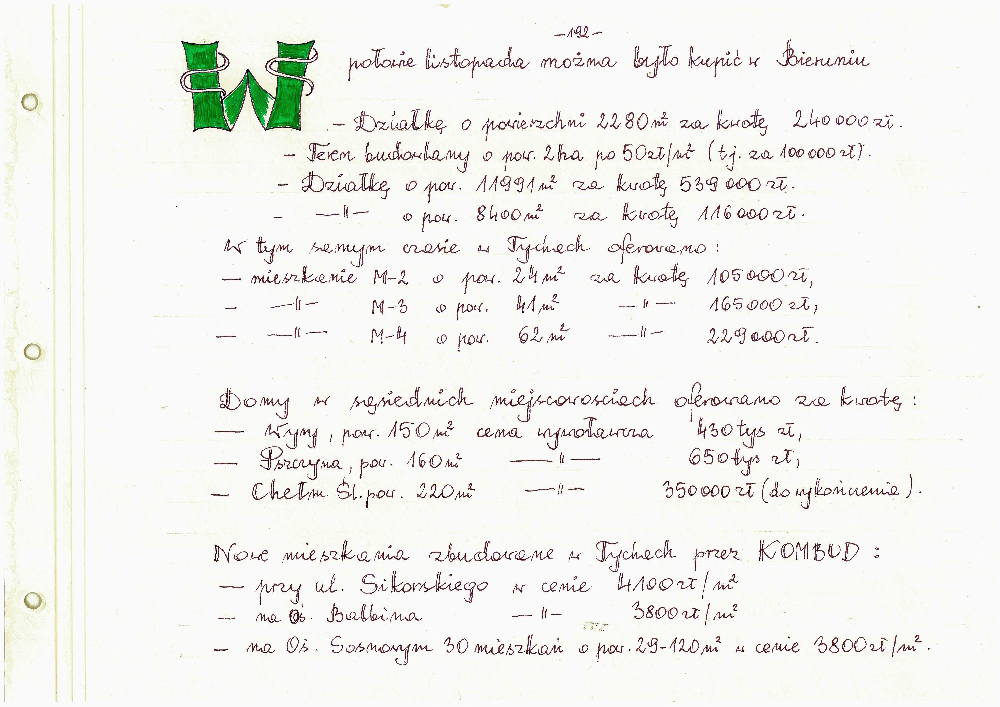 -192-
W połowie listopada można było kupić w Bieruniu
- Działkę o powierzchni 2280 m² za kwotę 240 000 zł.
- Teren budowlany o pow. 2 ha po 50 zł/m² (tj. za 100 000 zł).
- Działkę o pow. 11991 m² za kwotę 539 000 zł.
- —"— o pow. 8400 m² za kwotę 116 000 zł.
W tym samym czasie w Tychach oferowano :
- mieszkanie M-2 o pow. 24 m² za kwotę 105 000 zł,
- —"— M-3 o pow. 41 m² —"— 165 000 zł,
- —"— M-4 o pow. 62 m² —"— 229 000 zł.
Domy w sąsiednich miejscowościach oferowano za kwotę :
- Wyry, pow. 150 m² cena wywoławcza 430 tys zł,
- Pszczyna, pow. 160 m² —"— 650 tys zł,
- Chełm. Śl. pow. 220 m² —"— 350 000 zł (do wykończenia).
Nowe mieszkania zbudowane w Tychach przez KOMBUD :
- przy ul. Sikorskiego w cenie 4100 zł/m²
- na Oś. Balbina —"— 3800 zł/m²
- na Oś. Sosnowym 30 mieszkań o pow. 29-120 m² w cenie 3800 zł/m².